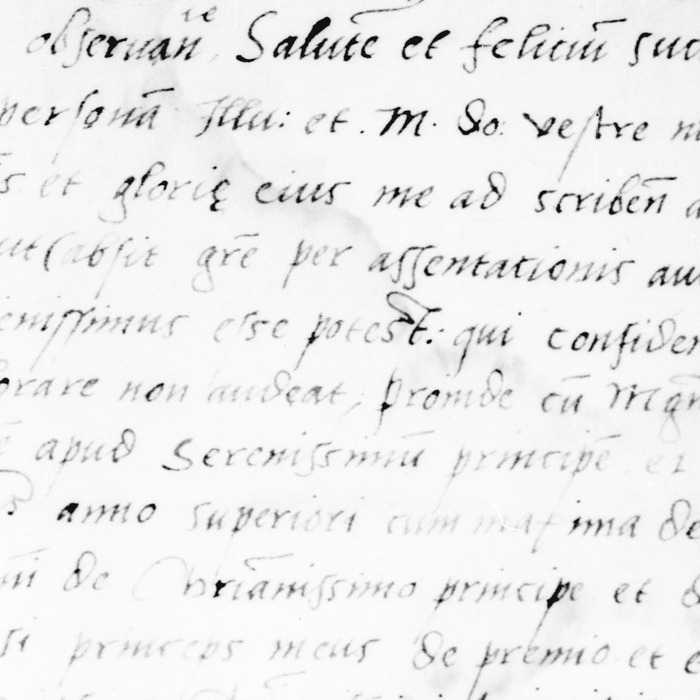 observan̄ Salutē et feliciū suc
personā Illu: et. M. Do: vestre m
s et glorię eius me ad scriben̄ a
ut (absit gr̄e per assentationis au
enissimus esse potest: qui confiden
orare non audeat, Proinde cū Mgn
apud Serenissimū principē et
anno superiori cum maxima de
de Chr̄ianissimo principe et d
si princeps meus de premio et e